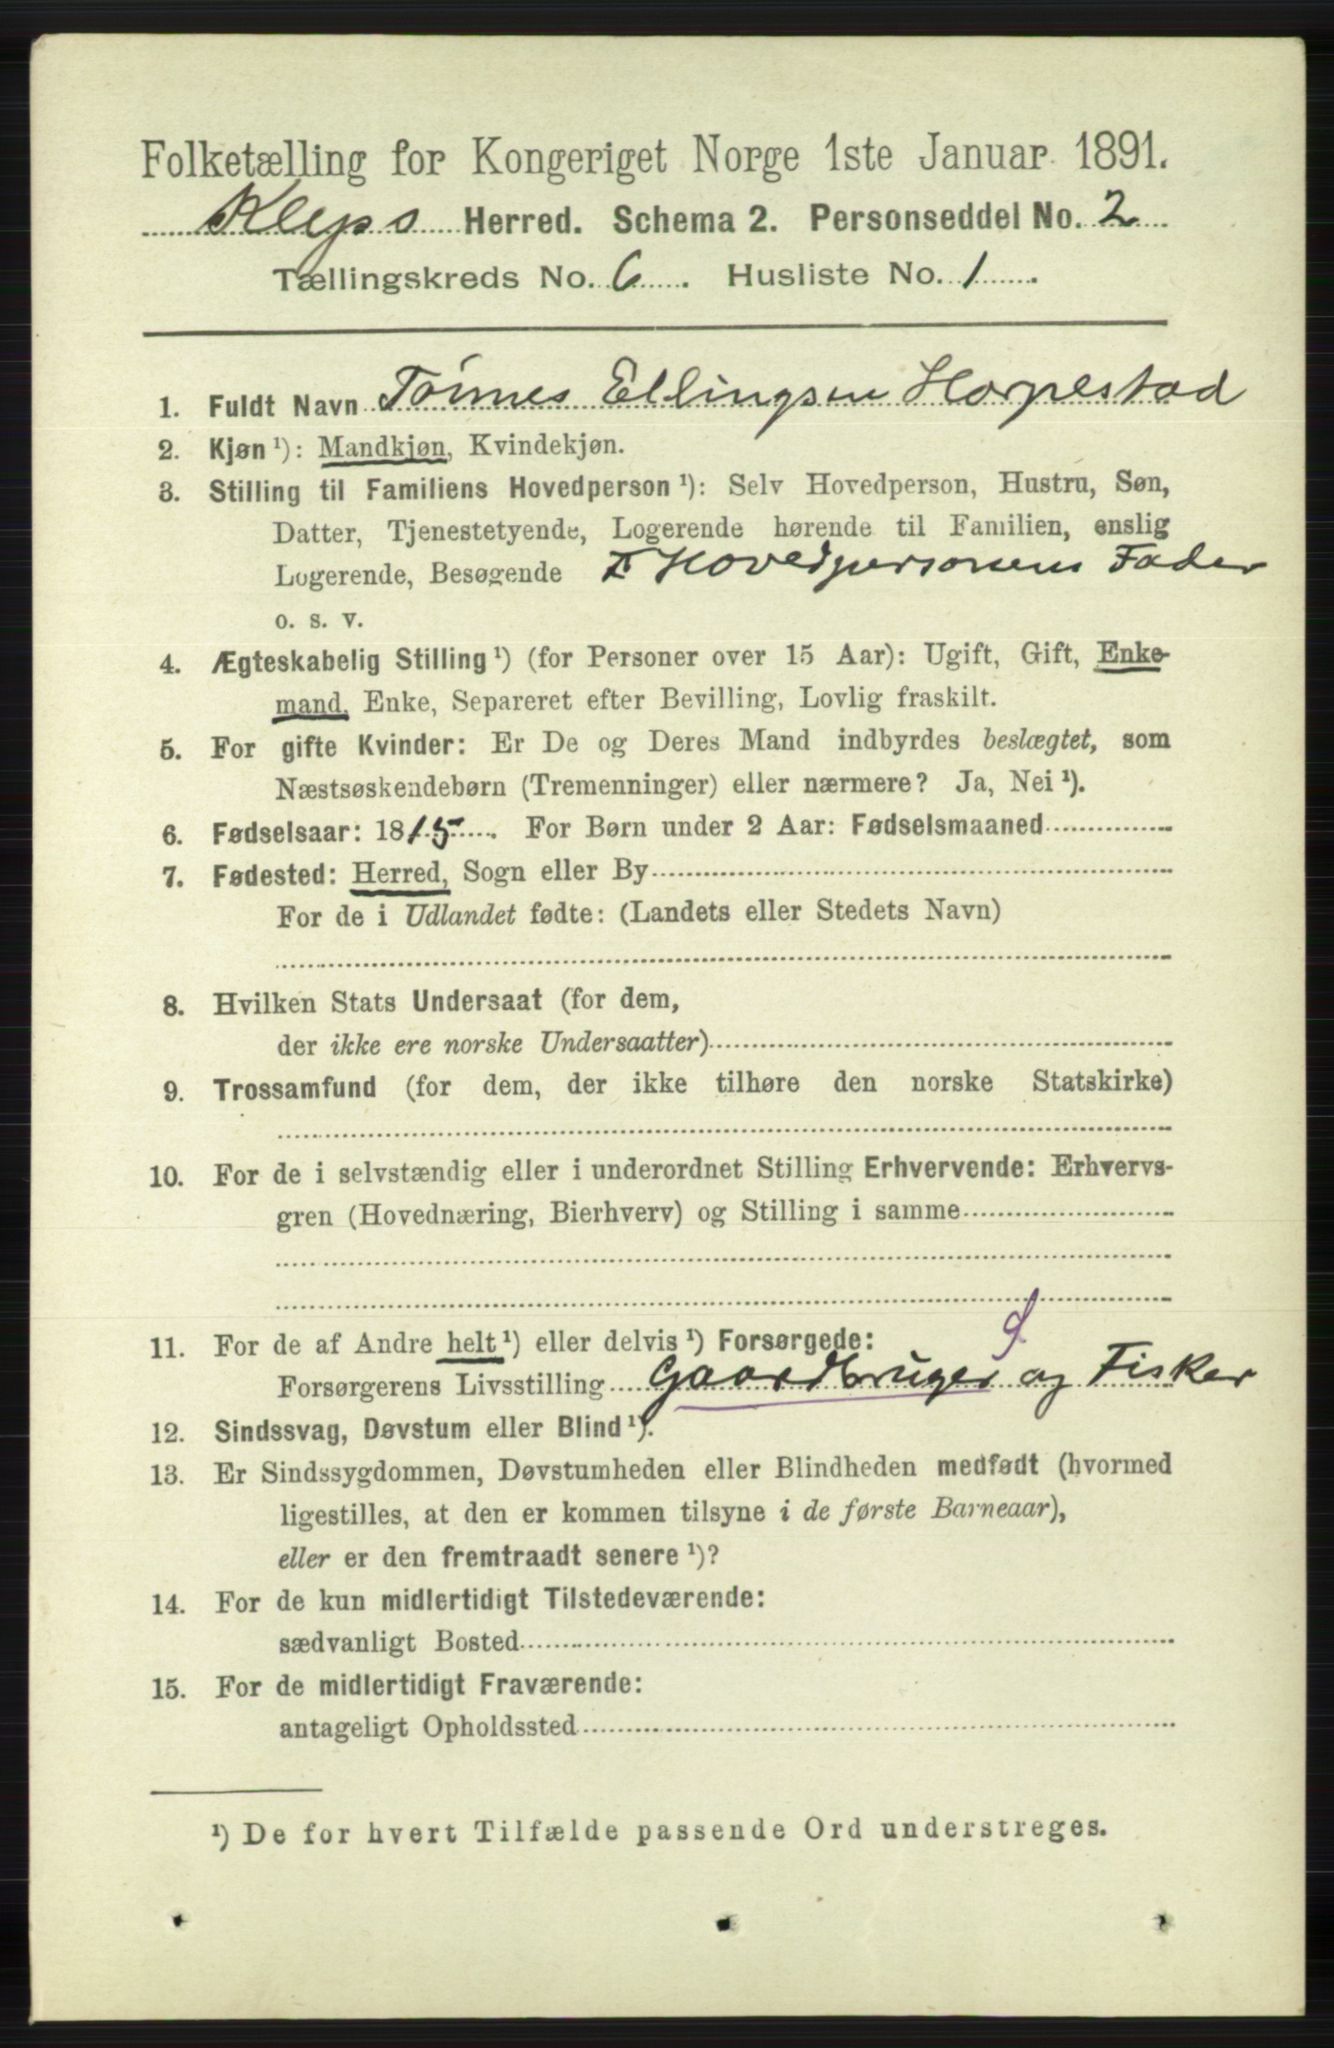 Folketælling for Kongeriget Norge 1ste Januar 1891.
Kleps Herred. Schema 2. Personseddel No. 2
Tællingskreds No. 6. Husliste No. 1.
1. Fuldt Navn Tönnes Ellingsen Horpestad
2. Kjøn ¹): Mandkjøn, Kvindekjøn.
3. Stilling til Familiens Hovedperson ¹): Selv Hovedperson, Hustru, Søn,
Datter, Tjenestetyende, Logerende hørende til Familien, enslig
Logerende, Besøgende Hovedpersonens Fader
o. s. v.
4. Ægteskabelig Stilling ¹) (for Personer over 15 Aar): Ugift, Gift, Enke-
mand, Enke, Separeret efter Bevilling, Lovlig fraskilt.
5. For gifte Kvinder: Er De og Deres Mand indbyrdes beslægtet, som
Næstsøskendebørn (Tremenninger) eller nærmere? Ja, Nei ¹).
6. Fødselsaar: 1815. For Børn under 2 Aar: Fødselsmaaned
7. Fødested: Herred, Sogn eller By
For de i Udlandet fødte: (Landets eller Stedets Navn)
8. Hvilken Stats Undersaat (for dem,
der ikke ere norske Undersaatter)
9. Trossamfund (for dem, der ikke tilhøre den norske Statskirke)
10. For de i selvstændig eller i underordnet Stilling Erhvervende: Erhvervs-
gren (Hovednæring, Bierhverv) og Stilling i samme
11. For de af Andre helt ¹) eller delvis ¹) Forsørgede:
Forsørgerens Livsstilling Gaardbruger og Fisker
12. Sindssvag, Døvstum eller Blind ¹).
13. Er Sindssygdommen, Døvstumheden eller Blindheden medfødt (hvormed
ligestilles, at den er kommen tilsyne i de første Barneaar),
eller er den fremtraadt senere ¹)?
14. For de kun midlertidigt Tilstedeværende:
sædvanligt Bosted
15. For de midlertidigt Fraværende:
antageligt Opholdssted
¹) De for hvert Tilfælde passende Ord understreges.